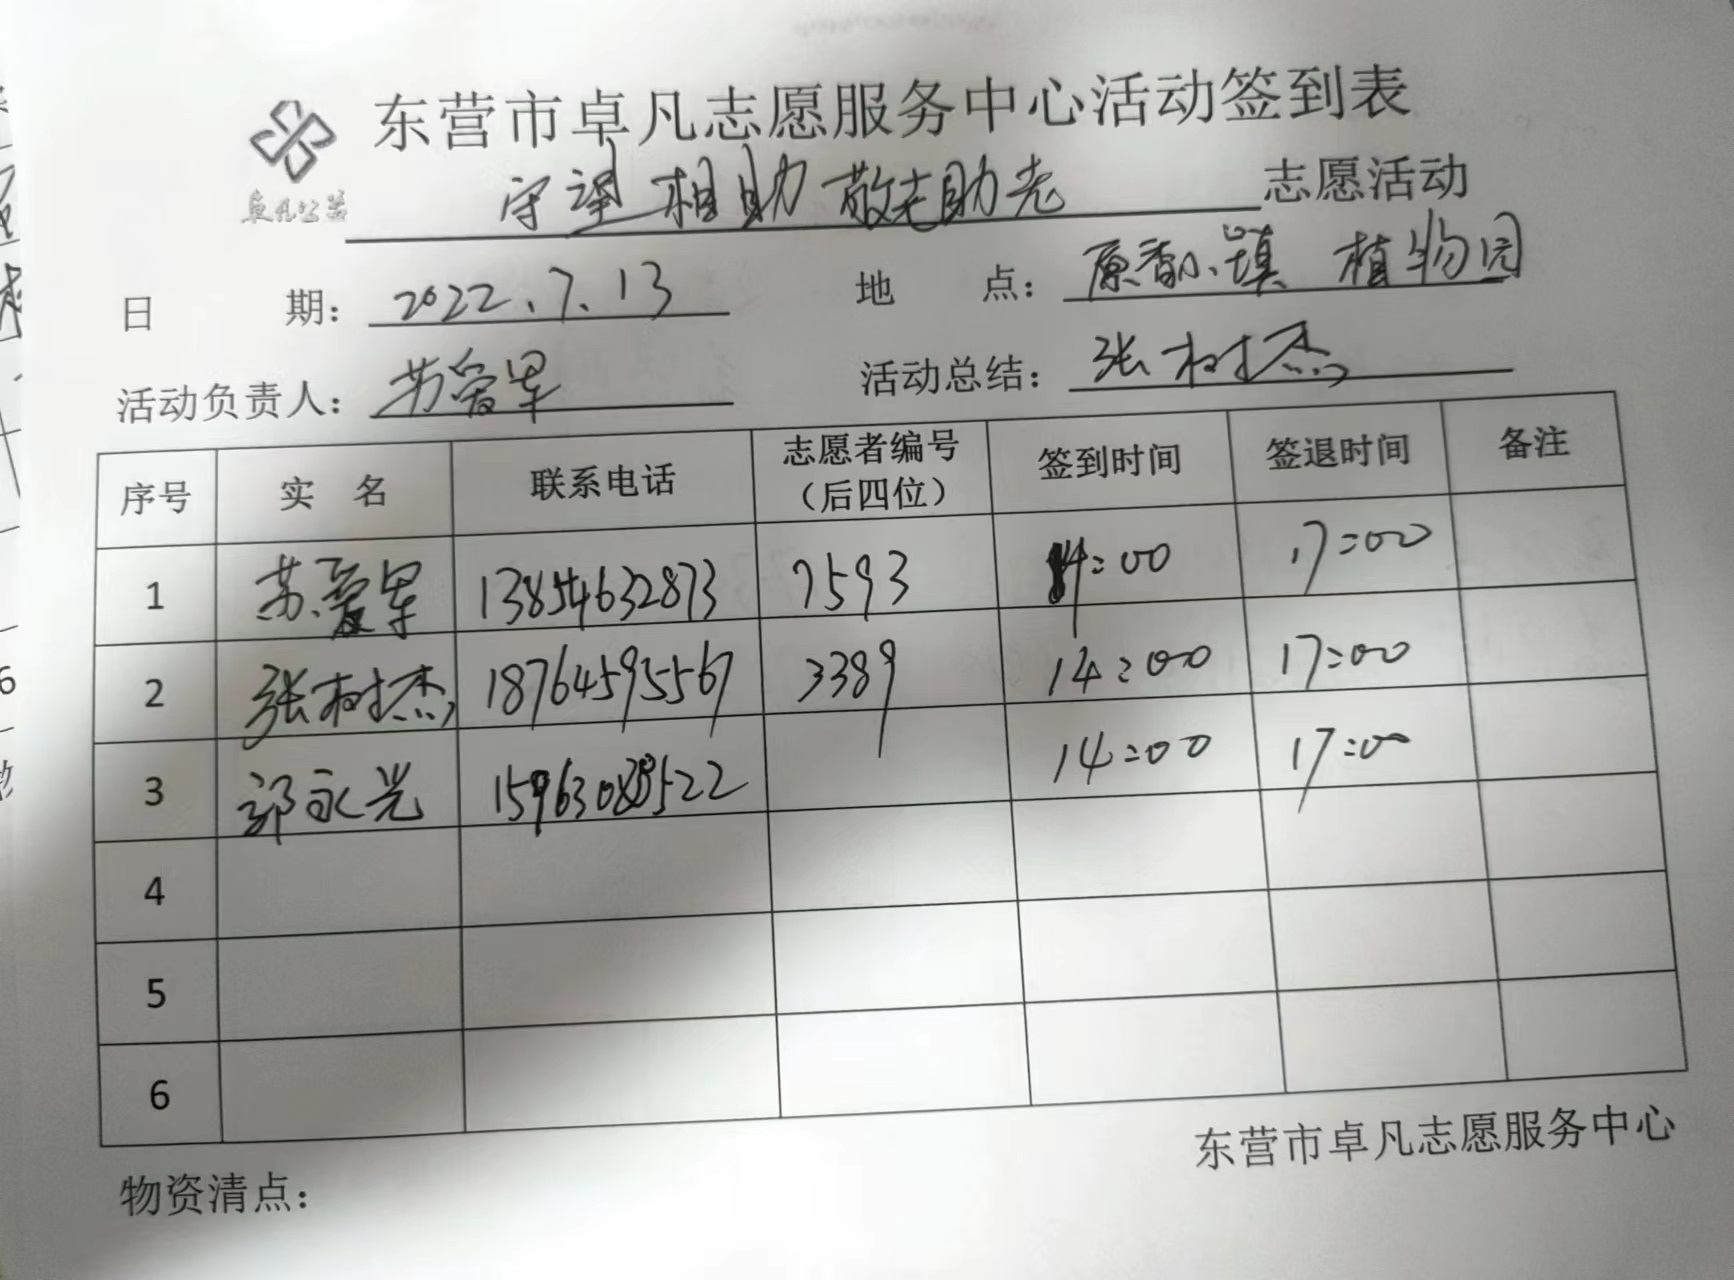 东营市卓凡志愿服务中心活动签到表
卓凡公益
守望相助 敬老助老 志愿活动
日 期: 2022.7.13 地 点: 原香小镇 植物园
活动负责人: 苏爱军 活动总结: 张树杰
序号 实 名 联系电话 志愿者编号(后四位) 签到时间 签退时间 备注
1 苏爱军 13854632873 7593 14:00 17:00
2 张树杰 18764595567 3389 14:00 17:00
3 郭永光 14:00 17:00
4
5
6
东营市卓凡志愿服务中心
物资清点: